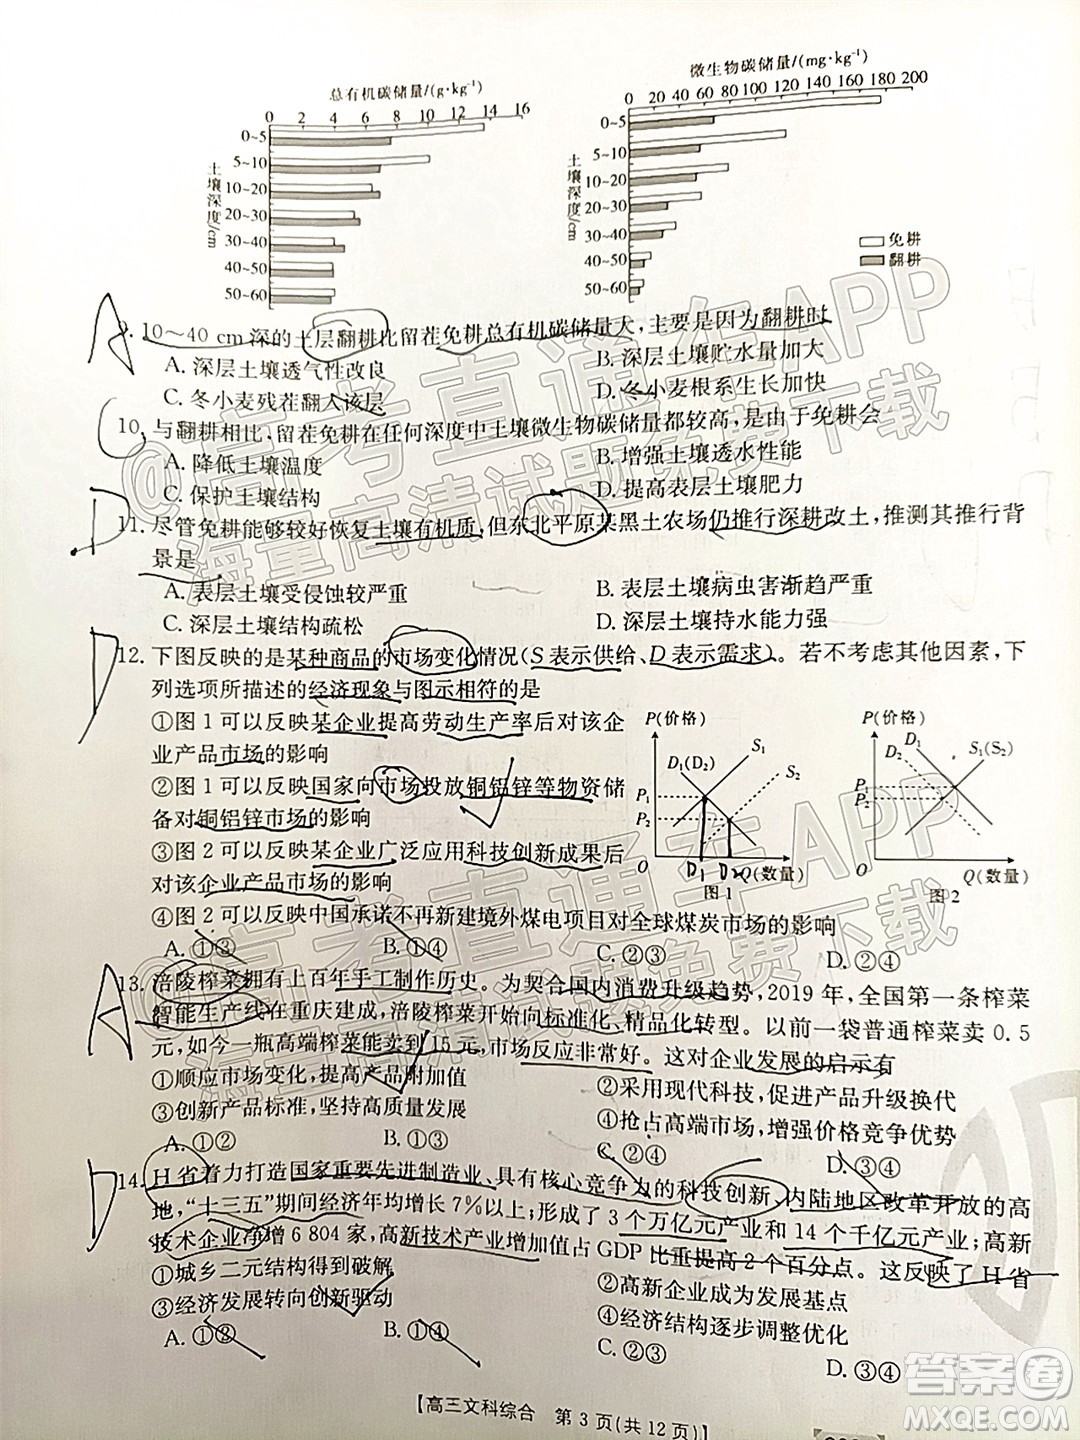 总有机碳储量/(g·kg⁻¹)
0 2 4 6 8 10 12 14 16
0~5
5~10
10~20
20~30
30~40
40~50
50~60
土壤深度/cm
微生物碳储量/(mg·kg⁻¹)
0 20 40 60 80 100 120 140 160 180 200
0~5
5~10
10~20
20~30
30~40
40~50
50~60
土壤深度/cm
免耕
翻耕
A
9. 10～40 cm深的土层翻耕比留茬免耕总有机碳储量大，主要是因为翻耕时
A. 深层土壤透气性改良
B. 深层土壤贮水量加大
C. 冬小麦残茬翻入该层
D. 冬小麦根系生长加快
C
10. 与翻耕相比，留茬免耕在任何深度中土壤微生物碳储量都较高，是由于免耕会
A. 降低土壤温度
B. 增强土壤透水性能
C. 保护土壤结构
D. 提高表层土壤肥力
D
11. 尽管免耕能够较好恢复土壤有机质，但东北平原某黑土农场仍推行深耕改土，推测其推行背
景是
A. 表层土壤受侵蚀较严重
B. 表层土壤病虫害渐趋严重
C. 深层土壤结构疏松
D. 深层土壤持水能力强
D
12. 下图反映的是某种商品的市场变化情况(S表示供给、D表示需求)。若不考虑其他因素，下
列选项所描述的经济现象与图示相符的是
①图1可以反映某企业提高劳动生产率后对该企
业产品市场的影响
②图1可以反映国家向市场投放铜铝锌等物资储
备对铜铝锌市场的影响
③图2可以反映某企业广泛应用科技创新成果后
对该企业产品市场的影响
④图2可以反映中国承诺不再新建境外煤电项目对全球煤炭市场的影响
P(价格)
D₁(D₂)
S₁
S₂
P₁
P₂
O
D1 D2
Q(数量)
图1
P(价格)
D₁
D₂
S₁(S₂)
P₁
P₂
O
Q(数量)
图2
A. ①③
B. ①④
C. ②③
D. ②④
A
13. 涪陵榨菜拥有上百年手工制作历史。为契合国内消费升级趋势，2019年，全国第一条榨菜
智能生产线在重庆建成，涪陵榨菜开始向标准化、精品化转型。以前一袋普通榨菜卖0.5
元，如今一瓶高端榨菜能卖到15元，市场反应非常好。这对企业发展的启示有
①顺应市场变化，提高产品附加值
②采用现代科技，促进产品升级换代
③创新产品标准，坚持高质量发展
④抢占高端市场，增强价格竞争优势
A. ①②
B. ①③
C. ②④
D. ③④
D
14. H省着力打造国家重要先进制造业、具有核心竞争力的科技创新、内陆地区改革开放的高
地，“十三五”期间经济年均增长7%以上；形成了3个万亿元产业和14个千亿元产业；高新
技术企业净增6 804家，高新技术产业增加值占GDP比重提高2个百分点。这反映了H省
①城乡二元结构得到破解
②高新企业成为发展基点
③经济发展转向创新驱动
④经济结构逐步调整优化
A. ①②
B. ①④
C. ②③
D. ③④
【高三文科综合 第3页(共12页)】
@高考直通车APP
海量高清试题免费下载
@高考直通车APP
海量高清试题免费下载
答案圈
MXQE.COM